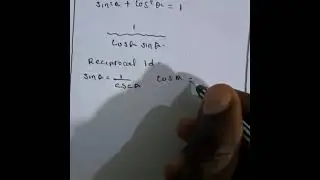 sin²θ + cos²θ = 1
1
cosθ sinθ
Reciprocal Id:
sinθ = 1/cscθ cosθ =